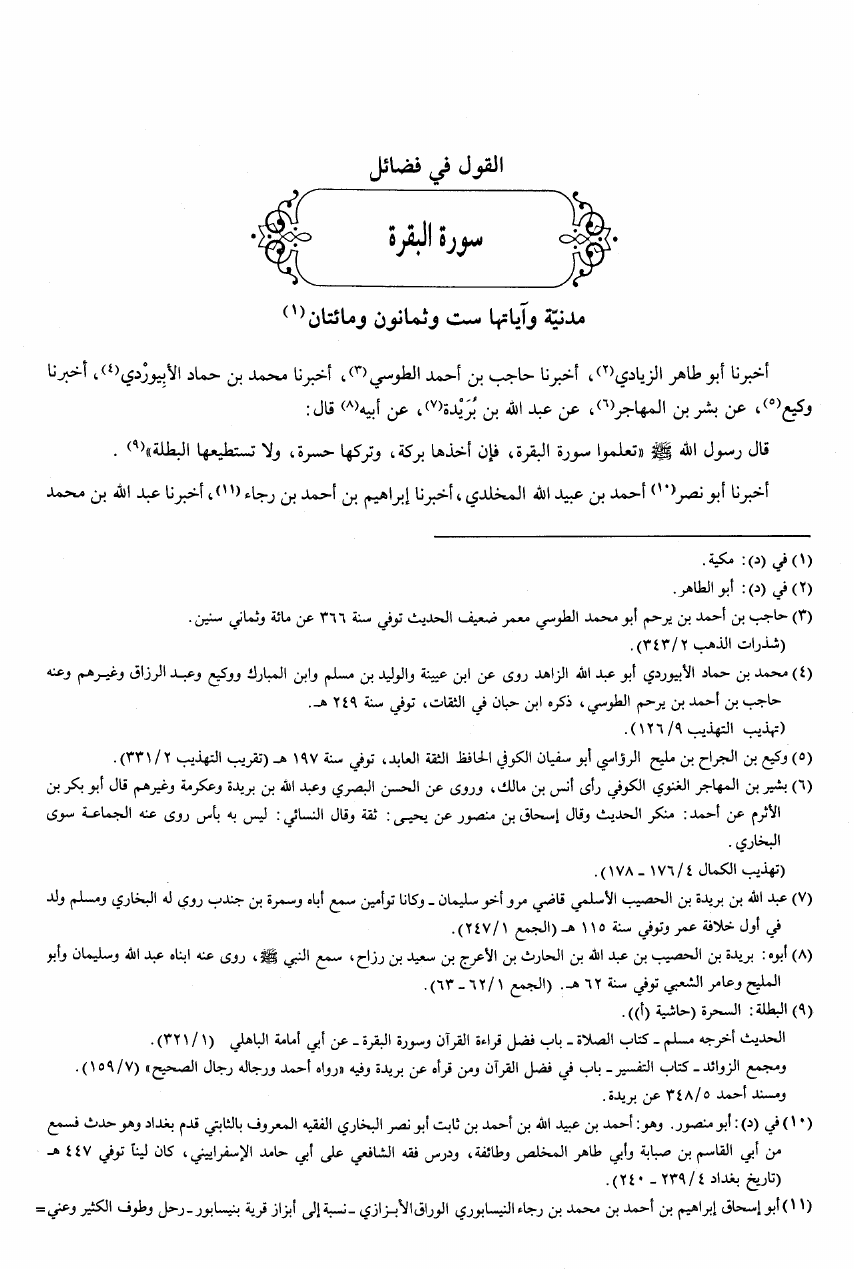 القول في فضائل
سورة البقرة
مدنيّة وآياتها ست وثمانون ومائتان(١)
أخبرنا أبو طاهر الزيادي(٢)، أخبرنا حاجب بن أحمد الطوسي(٣)، أخبرنا محمد بن حماد الأبِيوَرْدي(٤)، أخبرنا
وكيع(٥)، عن بشر بن المهاجر(٦)، عن عبد الله بن بُرَيْدة(٧)، عن أبيه(٨) قال:
قال رسول الله ﷺ «تعلموا سورة البقرة، فإن أخذها بركة، وتركها حسرة، ولا تستطيعها البطلة»(٩).
أخبرنا أبو نصر(١٠) أحمد بن عبيد الله المخلدي، أخبرنا إبراهيم بن أحمد بن رجاء(١١)، أخبرنا عبد الله بن محمد
(١) في (د): مكية.
(٢) في (د): أبو الطاهر.
(٣) حاجب بن أحمد بن يرحم أبو محمد الطوسي معمر ضعيف الحديث توفي سنة ٣٦٦ عن مائة وثماني سنين.
(شذرات الذهب ٣٤٣/٢).
(٤) محمد بن حماد الأبيوردي أبو عبد الله الزاهد روى عن ابن عيينة والوليد بن مسلم وابن المبارك ووكيع وعبد الرزاق وغيرهم وعنه
حاجب بن أحمد بن يرحم الطوسي، ذكره ابن حبان في الثقات، توفي سنة ٢٤٩ هـ.
(تهذيب التهذيب ١٢٦/٩).
(٥) وكيع بن الجراح بن مليح الرؤاسي أبو سفيان الكوفي الحافظ الثقة العابد، توفي سنة ١٩٧ هـ (تقريب التهذيب ٣٣١/٢).
(٦) بشير بن المهاجر الغنوي الكوفي رأى أنس بن مالك، وروى عن الحسن البصري وعبد الله بن بريدة وعكرمة وغيرهم قال أبو بكر بن
الأثرم عن أحمد: منكر الحديث وقال إسحاق بن منصور عن يحيى: ثقة وقال النسائي: ليس به بأس روى عنه الجماعة سوى
البخاري.
(تهذيب الكمال ١٧٦/٤ ـ ١٧٨).
(٧) عبد الله بن بريدة بن الحصيب الأسلمي قاضي مرو أخو سليمان ـ وكانا توأمين سمع أباه وسمرة بن جندب روى له البخاري ومسلم ولد
في أول خلافة عمر وتوفي سنة ١١٥ هـ (الجمع ٢٤٧/١).
(٨) أبوه: بريدة بن الحصيب بن عبد الله بن الحارث بن الأعرج بن سعيد بن رزاح، سمع النبي ﷺ، روى عنه ابناه عبد الله وسليمان وأبو
المليح وعامر الشعبي توفي سنة ٦٢ هـ. (الجمع ٦٢/١ ـ ٦٣).
(٩) البطلة: السحرة (حاشية (أ)).
الحديث أخرجه مسلم ـ كتاب الصلاة ـ باب فضل قراءة القرآن وسورة البقرة ـ عن أبي أمامة الباهلي (٣٢١/١).
ومجمع الزوائد ـ كتاب التفسير ـ باب في فضل القرآن ومن قرأه عن بريدة وفيه «رواه أحمد ورجاله رجال الصحيح» (١٥٩/٧).
ومسند أحمد ٣٤٨/٥ عن بريدة.
(١٠) في (د): أبو منصور. وهو: أحمد بن عبيد الله بن أحمد بن ثابت أبو نصر البخاري الفقيه المعروف بالثابتي قدم بغداد وهو حدث فسمع
من أبي القاسم بن صبابة وأبي طاهر المخلص وطائفة، ودرس فقه الشافعي على أبي حامد الإسفراييني، كان ليناً توفي ٤٤٧ هـ
(تاريخ بغداد ٢٣٩/٤ ـ ٢٤٠).
(١١) أبو إسحاق إبراهيم بن أحمد بن محمد بن رجاء النيسابوري الوراق الأبزازي ـ نسبة إلى أبزاز قرية بنيسابور ـ رحل وطوف الكثير وعني =